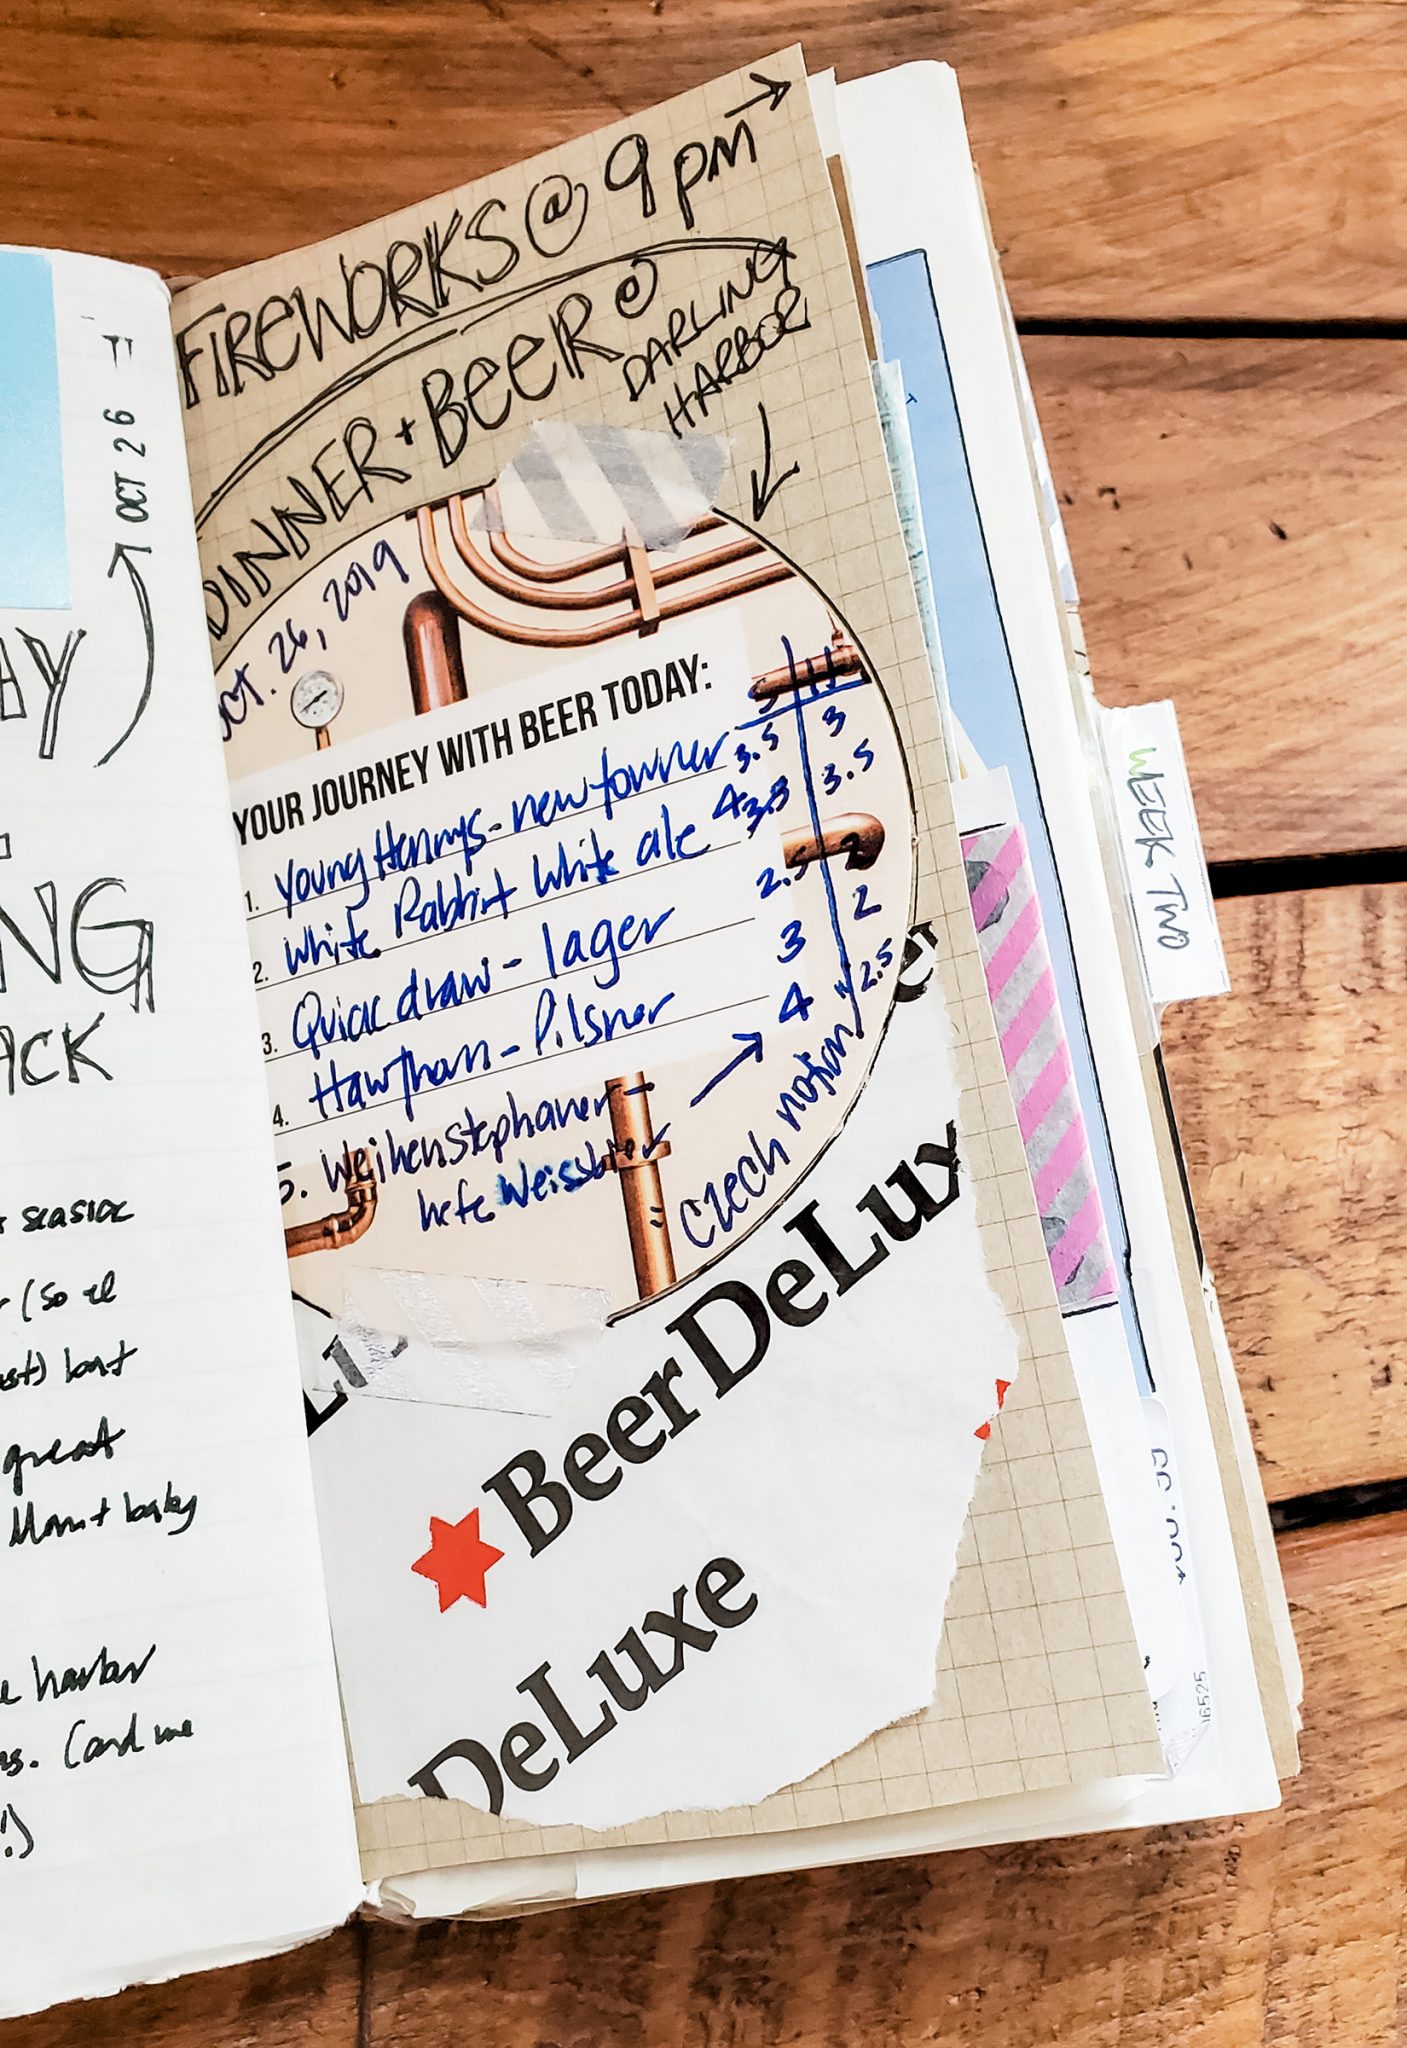 OCT 26
AY
NG
ACK
great
Mom + baby
harbor
(and me
FIREWORKS @ 9 pm →
DINNER + BEER @
DARLING
HARBOR
OCT. 26, 2019
YOUR JOURNEY WITH BEER TODAY:
1. Young Henrys - newtowner 3.5 3
2. White Rabbit White ale 3.5
3. Quick draw - lager 2.5 2
4. Hawthorn - Pilsner 3 2
5. Weihenstephaner - 4 2.5
hefe Weissbier
Czech notion
er
BeerDeLux
DeLuxe
WEEK TWO
16525